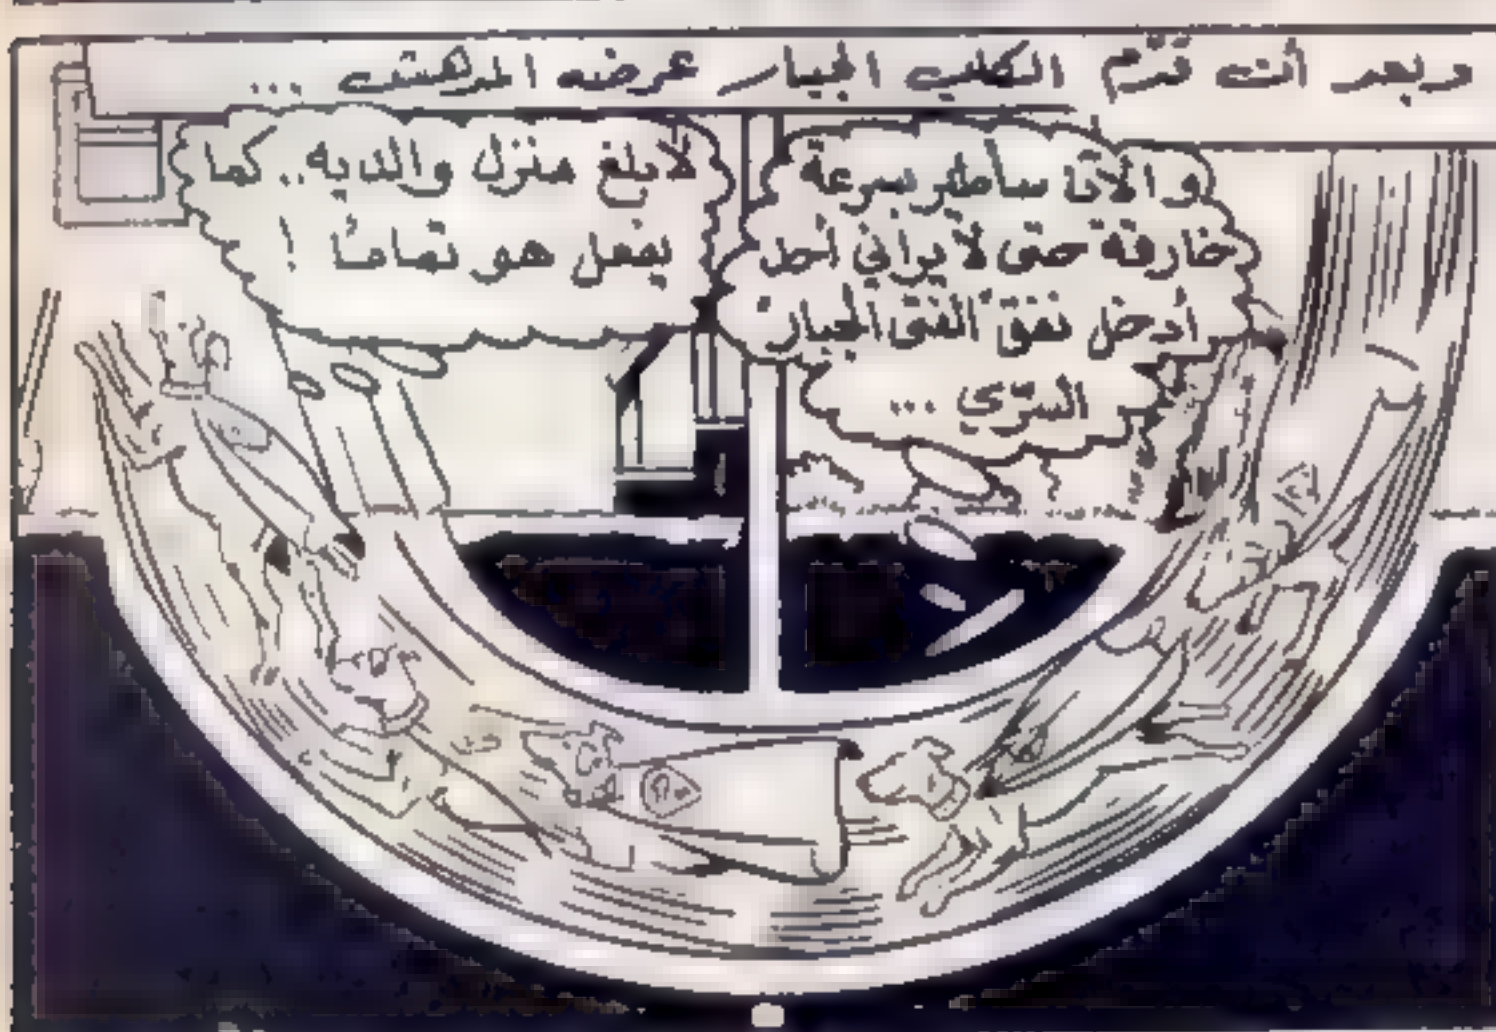 وبعد أن قدّم الكلب الجبار عرضه المدهش ...
والآن سأطير بسرعة
خارقة حتى لا يراني أحد
أدخل نفق الفتى الجبار
السرّي ...
لأبلغ منزل والديه.. كما
يفعل هو تمامًا !